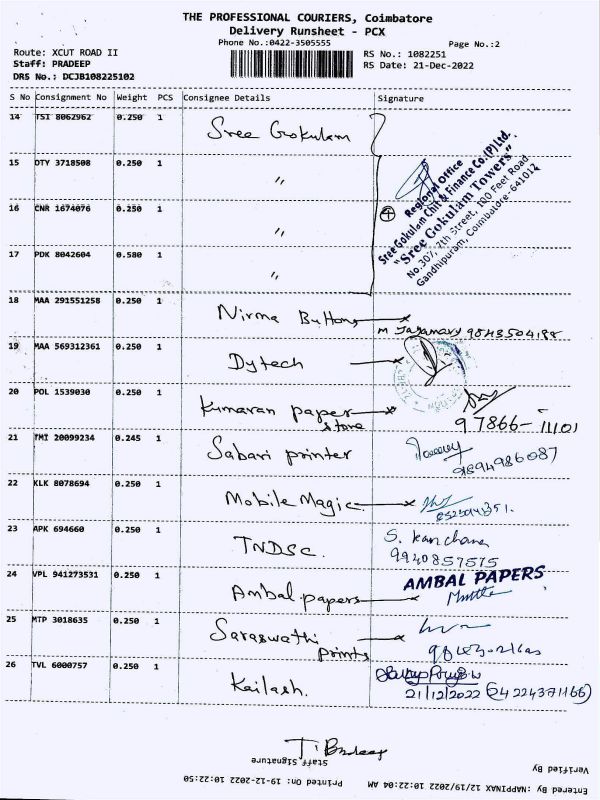 THE PROFESSIONAL COURIERS, Coimbatore
Delivery Runsheet - PCX
Phone No.:0422-3505555
Page No.:2
Route: XCUT ROAD II
RS No.: 1082251
Staff: PRADEEP
RS Date: 21-Dec-2022
DRS No.: DCJB108225102
S No Consignment No Weight PCS Consignee Details Signature
14 TSI 8062962 0.250 1 Sree Gokulam
15 DTY 3718508 0.250 1 〃
16 CNR 1674076 0.250 1 〃
17 PDK 8042604 0.580 1 〃
④
Regional Office
Sree Gokulam Chit & Finance Co.(P) Ltd.
"Sree Gokulam Towers",
No.307, 7th Street, 100 Feet Road
Gandhipuram, Coimbatore-641012
18 MAA 291551258 0.250 1 Nirma Buttons 9843504188
19 MAA 569312361 0.250 1 Dytech
20 POL 1539030 0.250 1 Kumaran paper
store
97866-11101
21 TMI 20099234 0.245 1 Sabari printer
9894986087
22 KLK 8078694 0.250 1 Mobile Magic
23 APK 694660 0.250 1 TNDSC. S. Kanchana
9940857575
24 VPL 941273531 0.250 1 Ambal papers AMBAL PAPERS
25 MTP 3018635 0.250 1 Saraswathi
prints
26 TVL 6000757 0.250 1 Kailash.
21/12/2022 (04224371166)
Staff Signature
Verified By
Printed On: 19-12-2022 10:22:50
Entered By :NAPPINAX 12/19/2022 10:22:04 AM